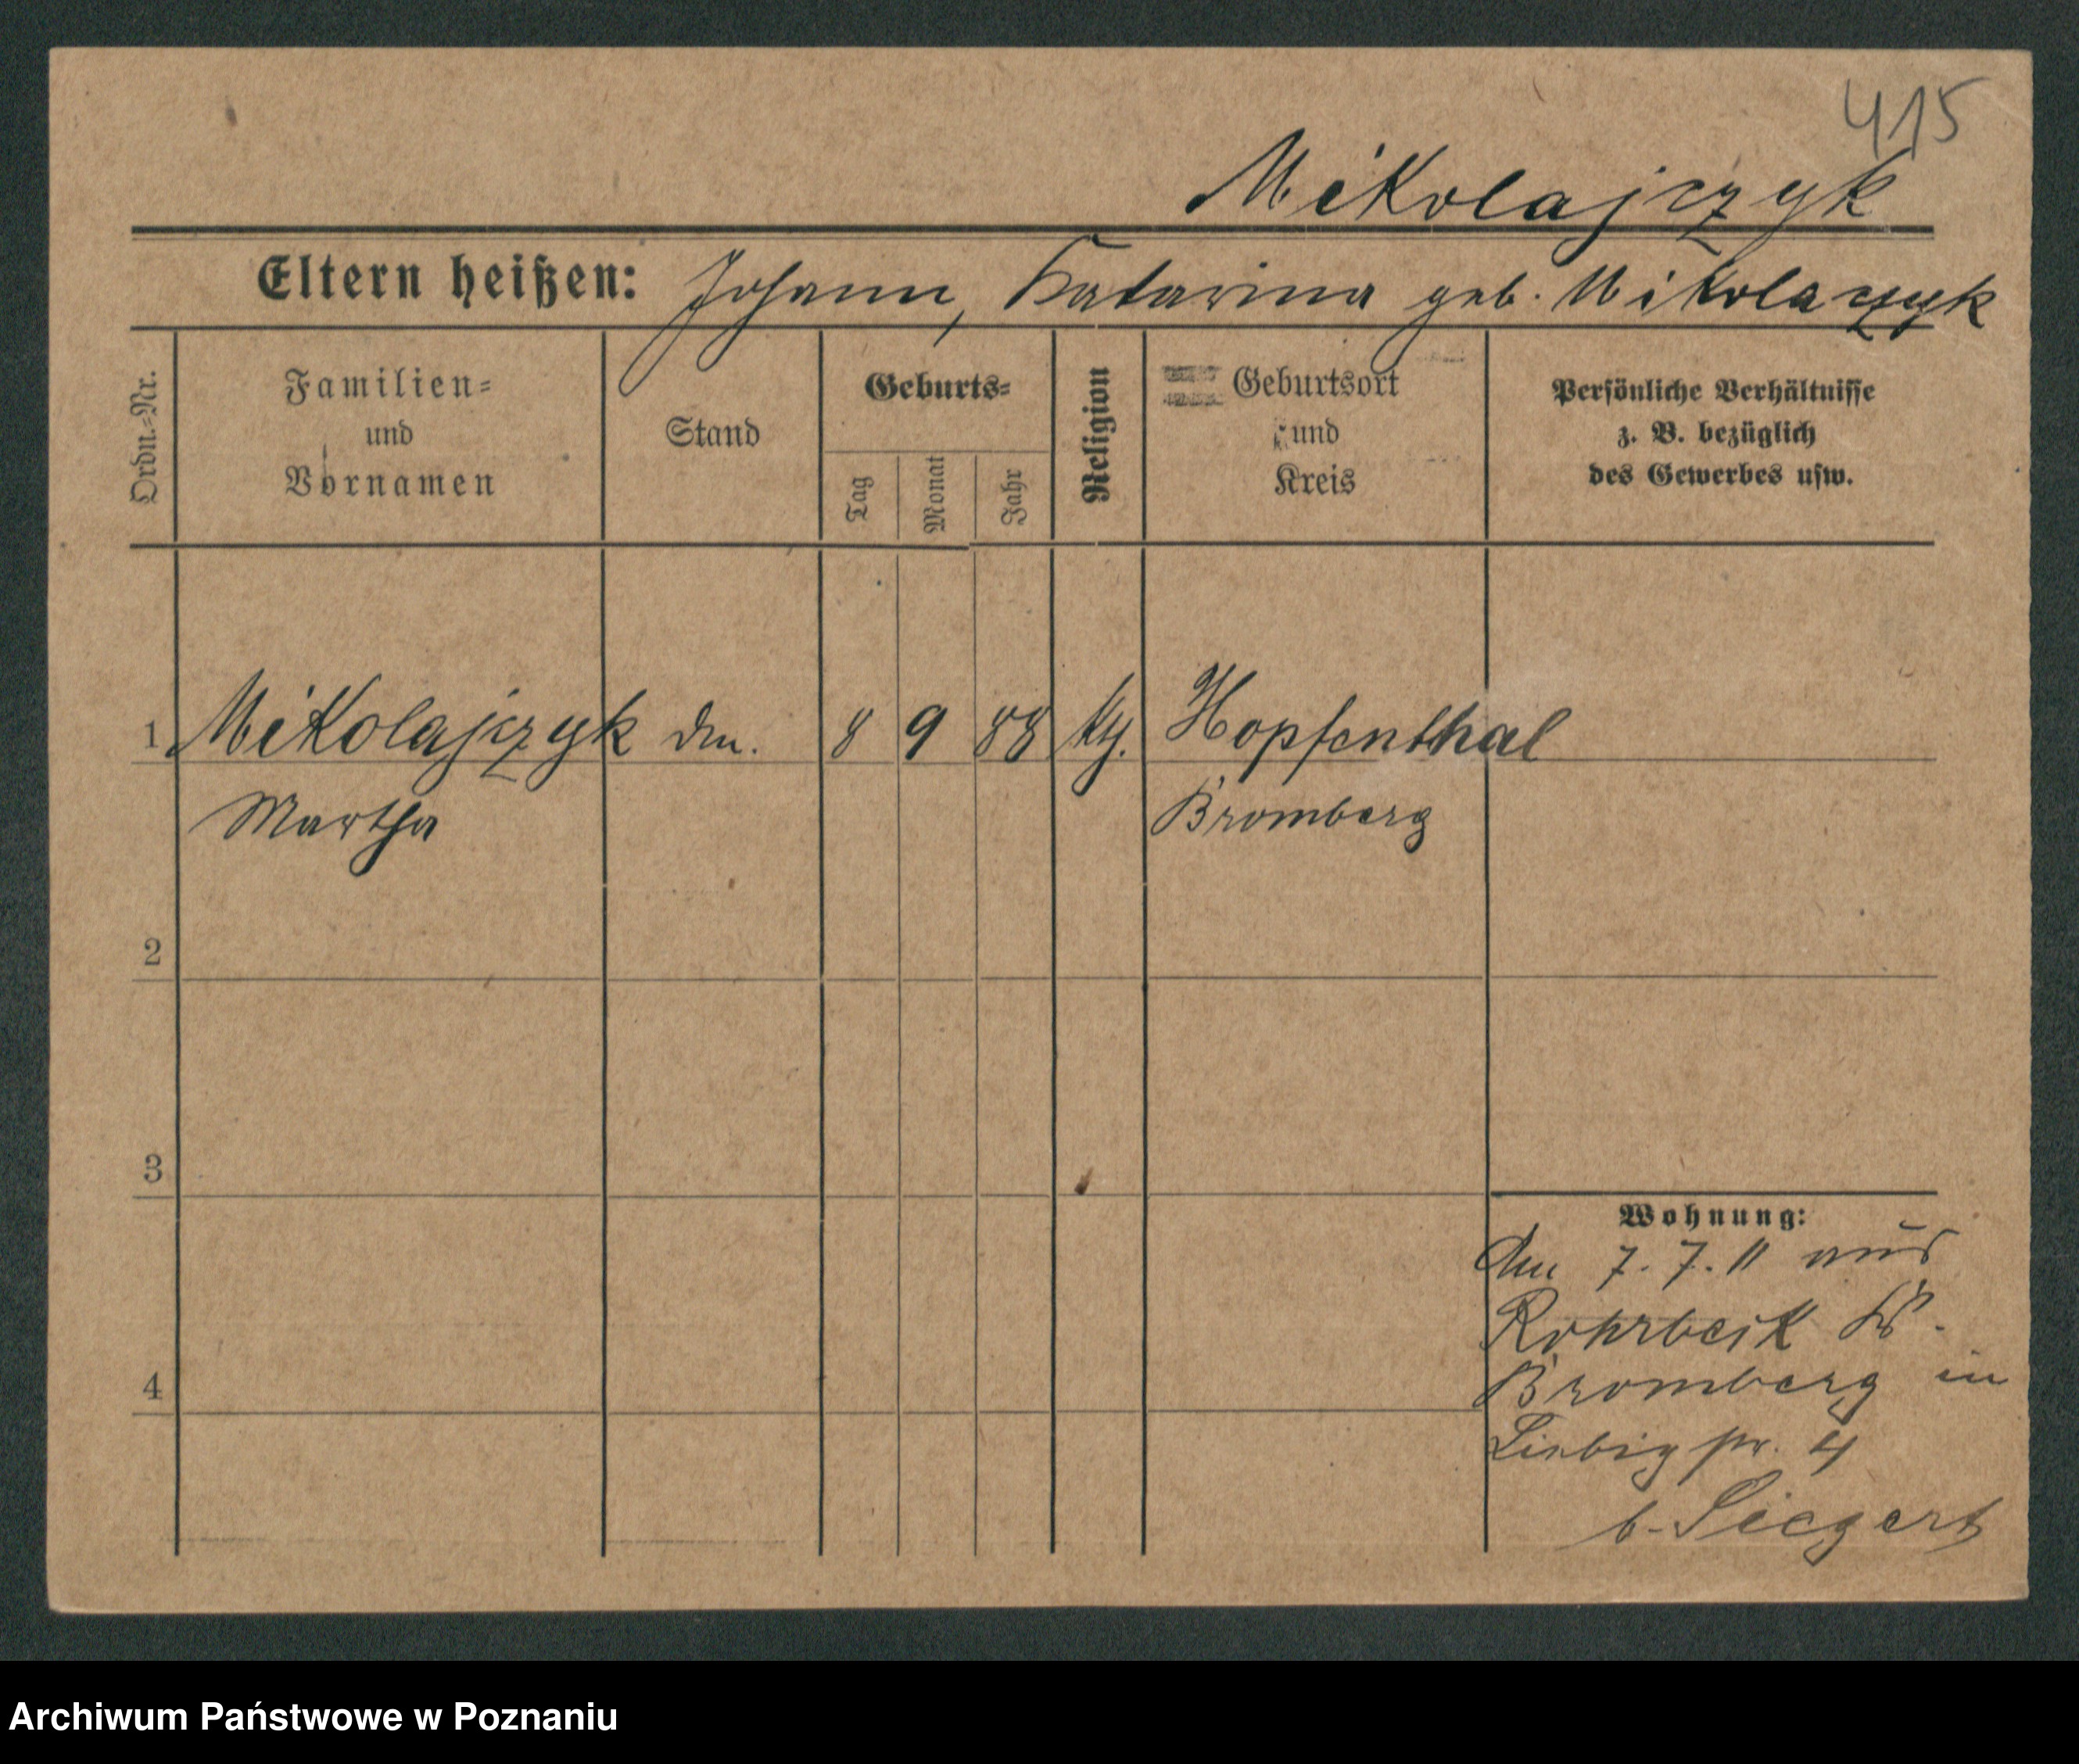 415
Mikolajczyk
Eltern heißen: Johann, Katarina geb. Mikolaczyk
Ordn.-Nr.
Familien-
und
Vornamen
Stand
Geburts-
Tag
Monat
Jahr
Religion
Geburtsort
und
Kreis
Persönliche Verhältnisse
z. B. bezüglich
des Gewerbes usw.
1 Mikolajczyk 8 9 88 kth. Hopfenthal
Martha Bromberg
2
3
4
Wohnung:
Am 7. 7. 11 aus
Rohrbeck Kr.
Bromberg in
Liebigstr. 4
b. Siegert
Archiwum Państwowe w Poznaniu